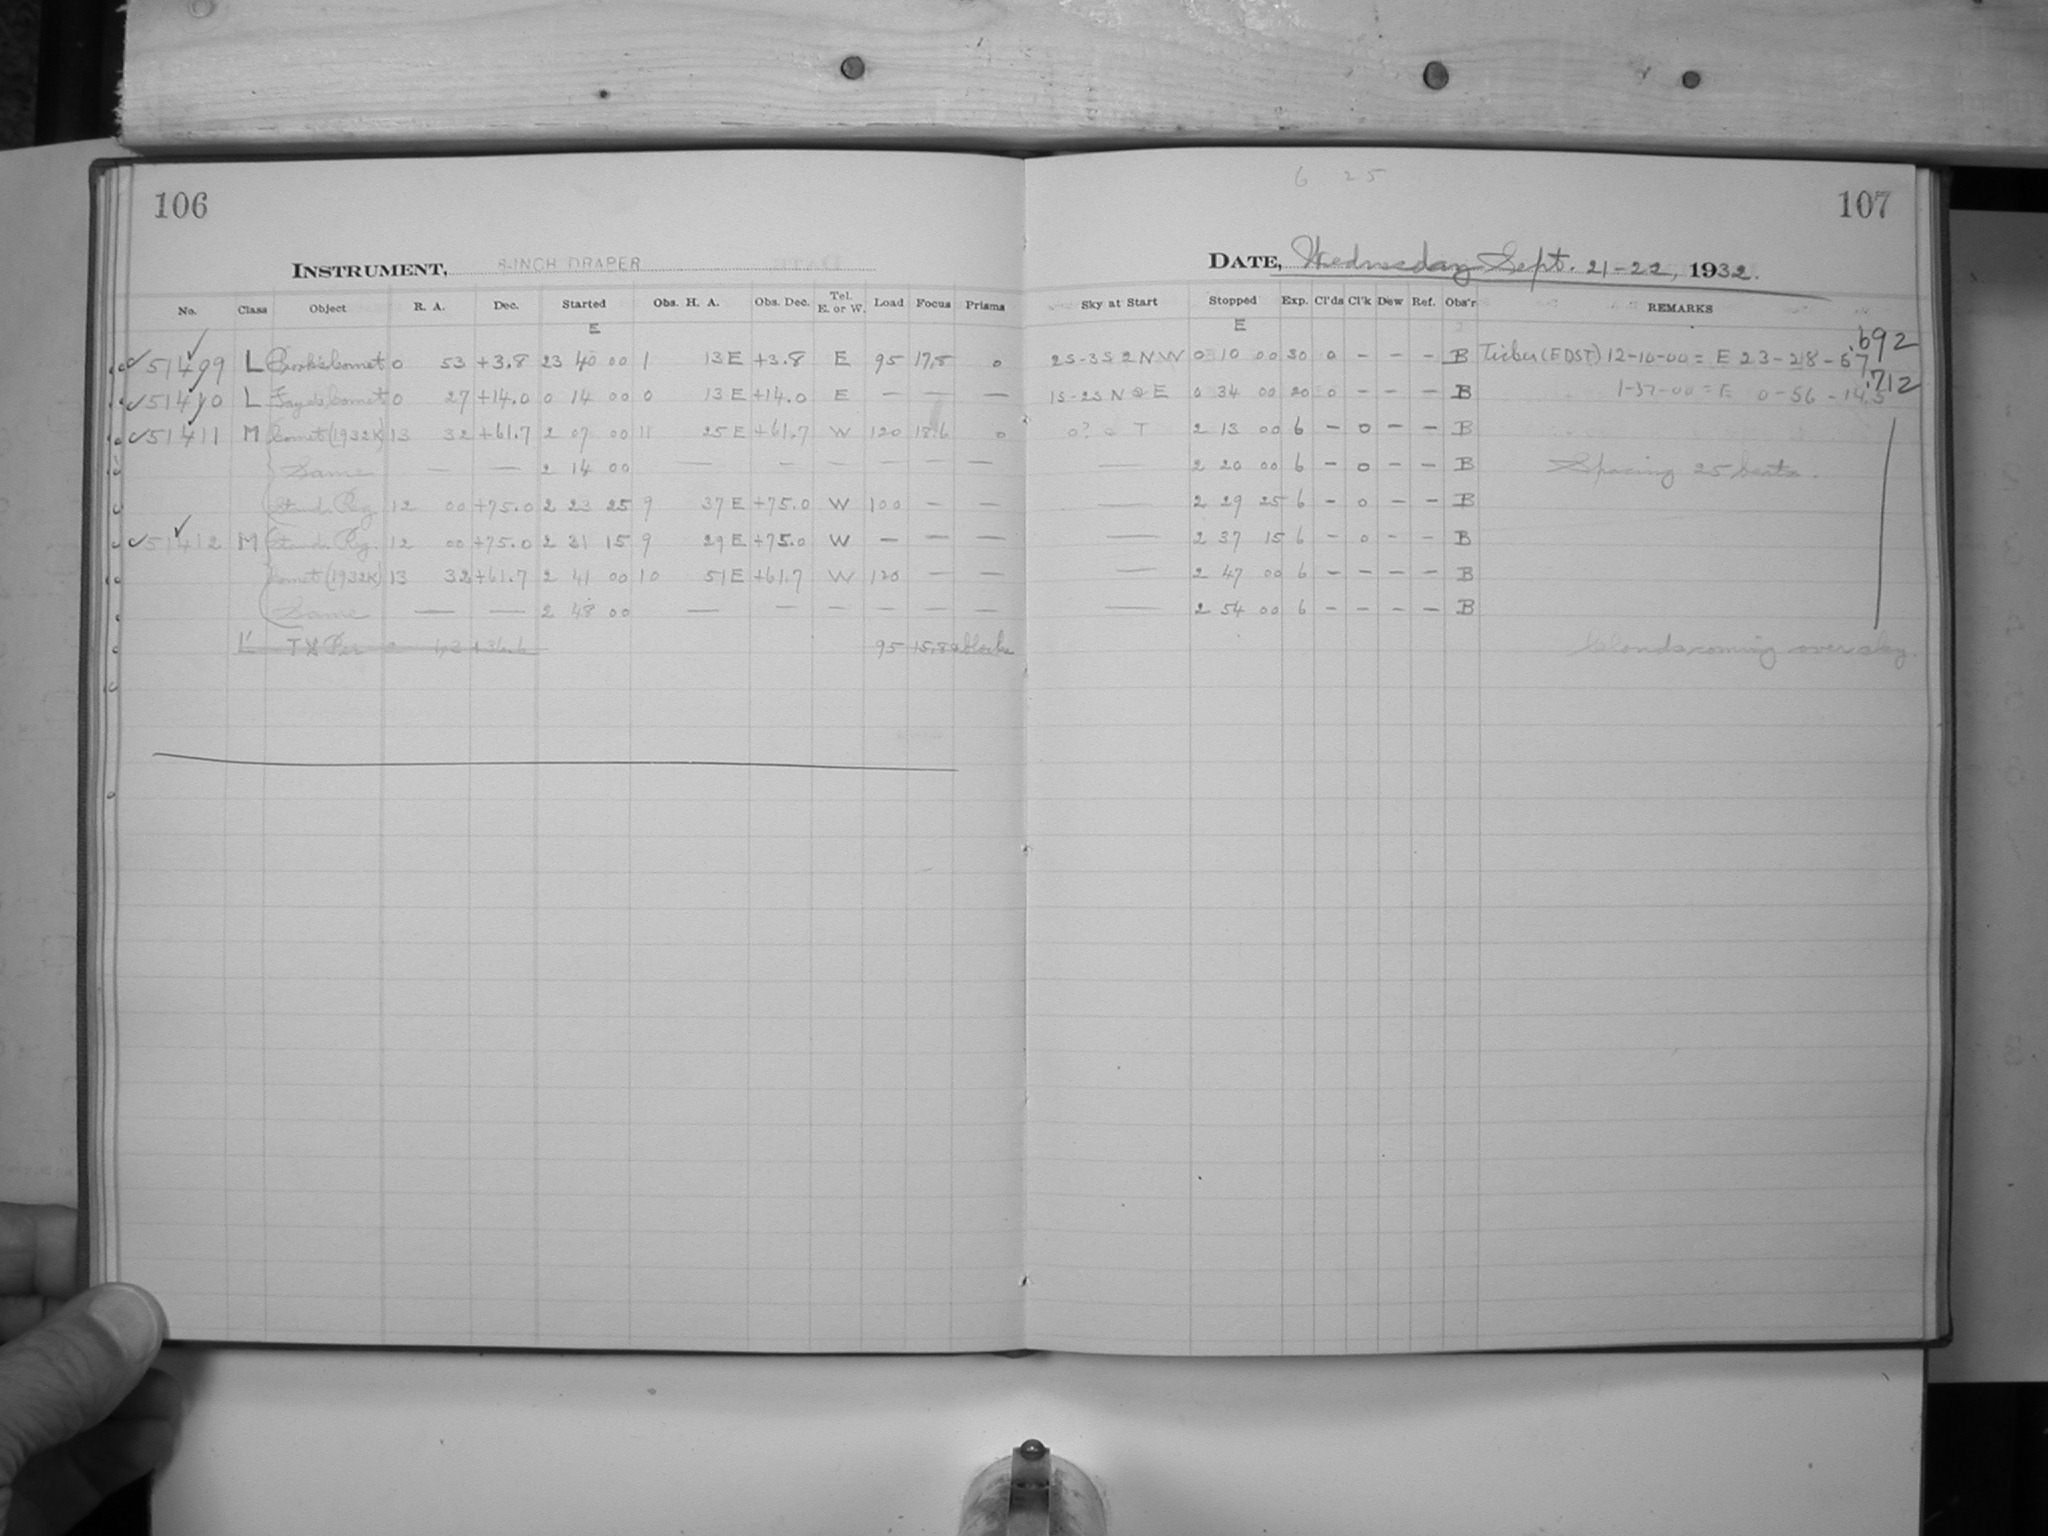 6 25
106
107
INSTRUMENT, 8-INCH DRAPER
DATE, Wednesday Sept. 21-22, 1932.
No. Class Object R. A. Dec. Started Obs. H. A. Obs. Dec. Tel. E. or W. Load Focus Prisms Sky at Start Stopped Exp. Cl'ds Cl'k Dew Ref. Obs'r REMARKS
E E
.692
L Brooks comet 0 53 +3.8 23 40 00 1 13 E +3.8 E 95 17.8 0 2S-3S 2 N W 0 10 00 30 0 - - - B Ticker (EDST) 12-10-00 = E 23-28-57
.712
L Faye's comet 0 27 +14.0 0 14 00 0 13 E +14.0 E — — — 1S-2S N E 0 34 00 20 0 - - - B 1-37-00 = E 0-56-14.5
51411 M Comet (1932K) 13 32 +61.7 2 07 00 11 25 E +61.7 W 120 18.6 0 0? 0 T 2 13 00 6 - 0 - - B
Same — — 2 14 00 — — — — — — — 2 20 00 6 - 0 - - B Spacing 25 beats.
Stand. Reg. 12 00 +75.0 2 23 25 9 37 E +75.0 W 100 — — — 2 29 25 6 - 0 - - B
51412 M Stand. Reg. 12 00 +75.0 2 31 15 9 29 E +75.0 W — — — — 2 37 15 6 - 0 - - B
Comet (1932K) 13 32 +61.7 2 41 00 10 51 E +61.7 W 120 — — — 2 47 00 6 - - - - B
Same — — 2 48 00 — — — — — — — 2 54 00 6 - - - - B
L' Per +36.6 95 Clouds coming over sky.